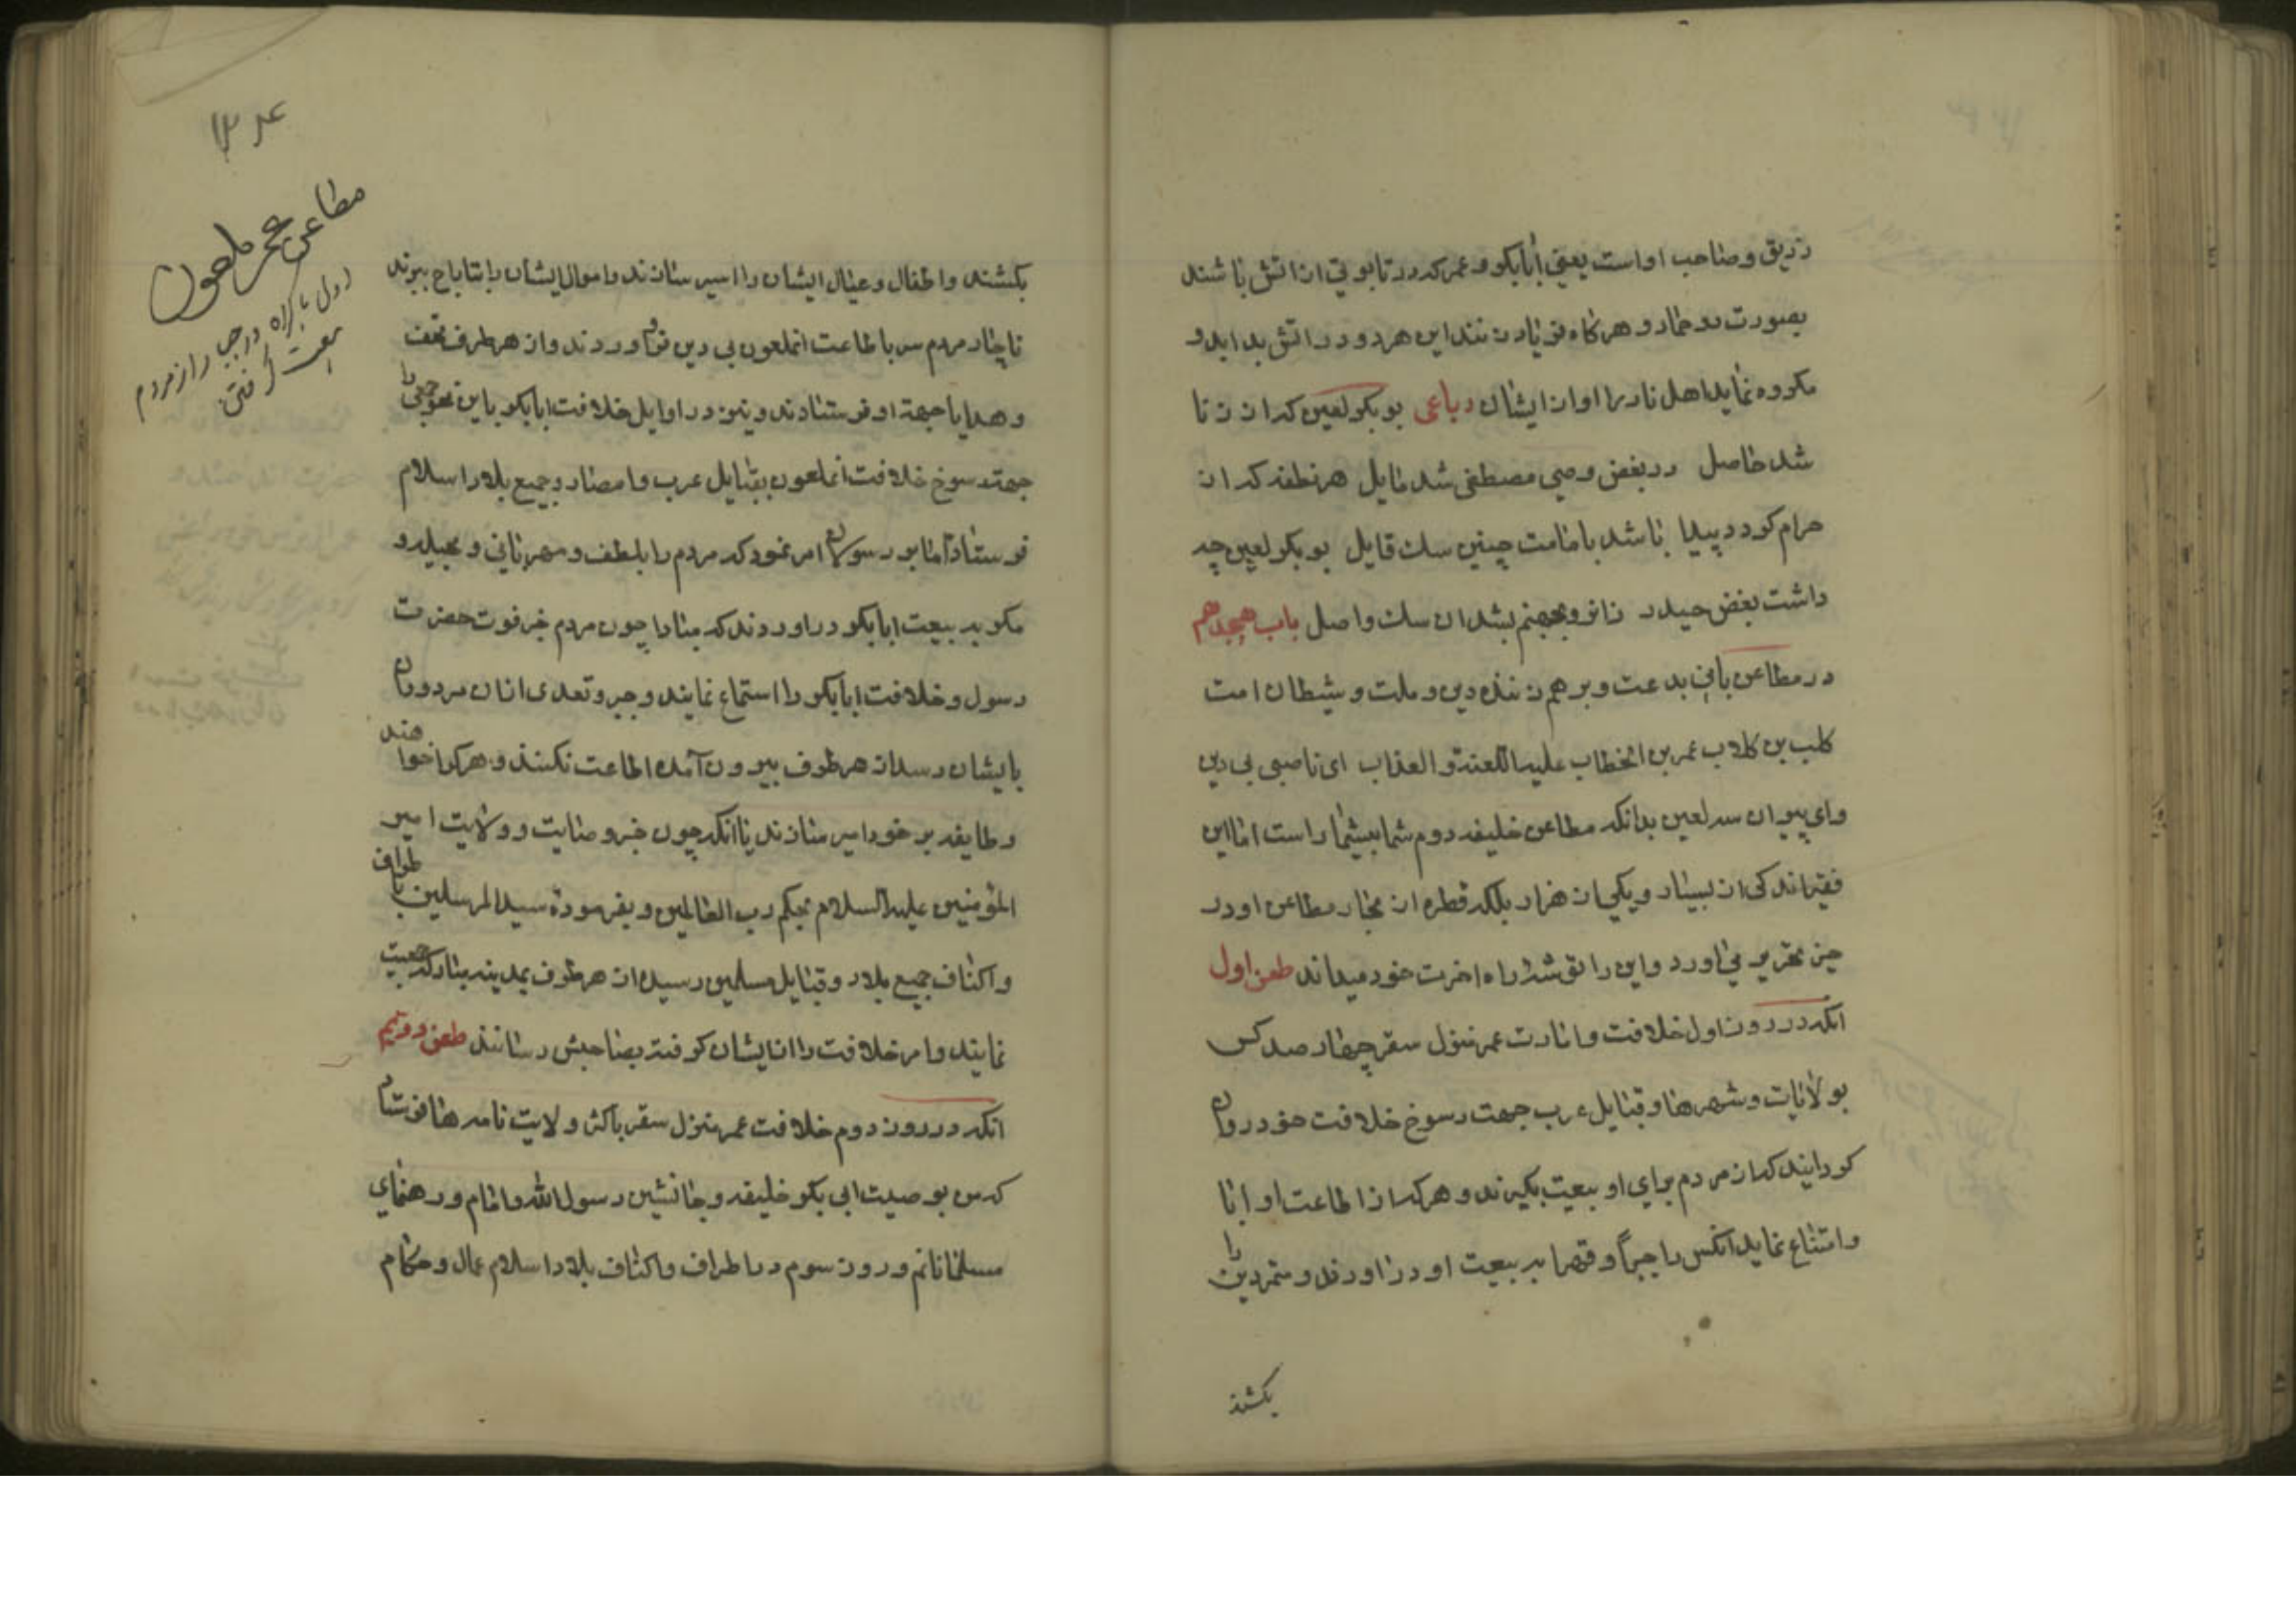 زریق و صاحب او است یعنی ابابکر و عمر که در تابوتی از اتش باشند
بصورت دو حمار و هرگاه فریاد زنند این هر دو در اتش بدایند و
مکروه نماید اهل نار را اواز ایشان رباعی بوبکر لعین که از زنا
شد حاصل در بغض وصی مصطفی شد مایل هر نطفه که از
حرام گردد پیدا باشد بامامت چنین سک قایل بوبکر لعین چه
داشت بغض حیدر زانرو بجهنم بشد ان سک واصل باب هیجدهم
در مطاعن بانی بدعت و برهم زننده دین و ملت و شیطان امت
کلب بن کلاب عمر بن الخطاب علیه اللعنة و العذاب ای ناصبی بی دین
و ای پیروان سه لعین بدانکه مطاعن خلیفه دوم شما بیشمار است اما این
فقیر اندکی از بسیار و یکی از هزار بلکه قطره از بحار مطاعن او در
حیز تحریر می اورد و این را توشه راه اخرت خود میداند طعن اول
انکه در روز اول خلافت و امارت عمر منزل سقر چهار صد کس
بولایات و شهرها و قبایل عرب جهت رسوخ خلافت خود روان
گردانید که از مردم برای او بیعت بگیرند و هرکه از اطاعت او ابا
و امتناع نماید انکس را جبرا و قهرا به بیعت او در اورند و متمردین را
بکشند
مطاعن عمر ملعون
اول باکراه و جبر از مردم
بیعت گرفتن
بکشند و اطفال و عیال ایشان را اسیر سازند و اموال ایشان را بتاراج ببرند
ناچار مردم سر باطاعت انملعون بی دین فرود اوردند و از هر طرف تحف
و هدایا جهة او فرستادند و نیز در اوایل خلافت ابابکر باین نحو جمعی را
جهة رسوخ خلافت انملعون بقبایل عرب و امصار و جمیع بلاد اسلام
فرستاد اما بو رسولان امر نمود که مردم را بلطف و مهربانی و بحیله و
مکر به بیعت ابابکر در اوردند که مبادا چون مردم خبر فوت حضرت
رسول و خلافت ابابکر را استماع نمایند و جبر و تعدی ازان مردودان
بایشان رسد از هر طرف بیرون آمده اطاعت نکنند و هرکرا خواهند
و طایفه بر خود امیر سازند یا انکه چون خبر وصایت و ولایت امیر
المؤمنین علیه السلام بحکم رب العالمین و بفرموده سید المرسلین باطراف
و اکناف جمیع بلاد و قبایل مسلمین رسیده از هر طرف بمدینه مبارکه جمعیت
نمایند و امر خلافت را از ایشان گرفته بصاحبش رسانند طعن دویم
انکه در روز دوم خلافت عمر منزل سقر باکثر ولایت نامه ها فرستاد
که من بوصیت ابی بکر خلیفه و جانشین رسول الله و امام و رهنمای
مسلمانانم و روز سوم در اطراف و اکناف بلاد اسلام عمال و حکام